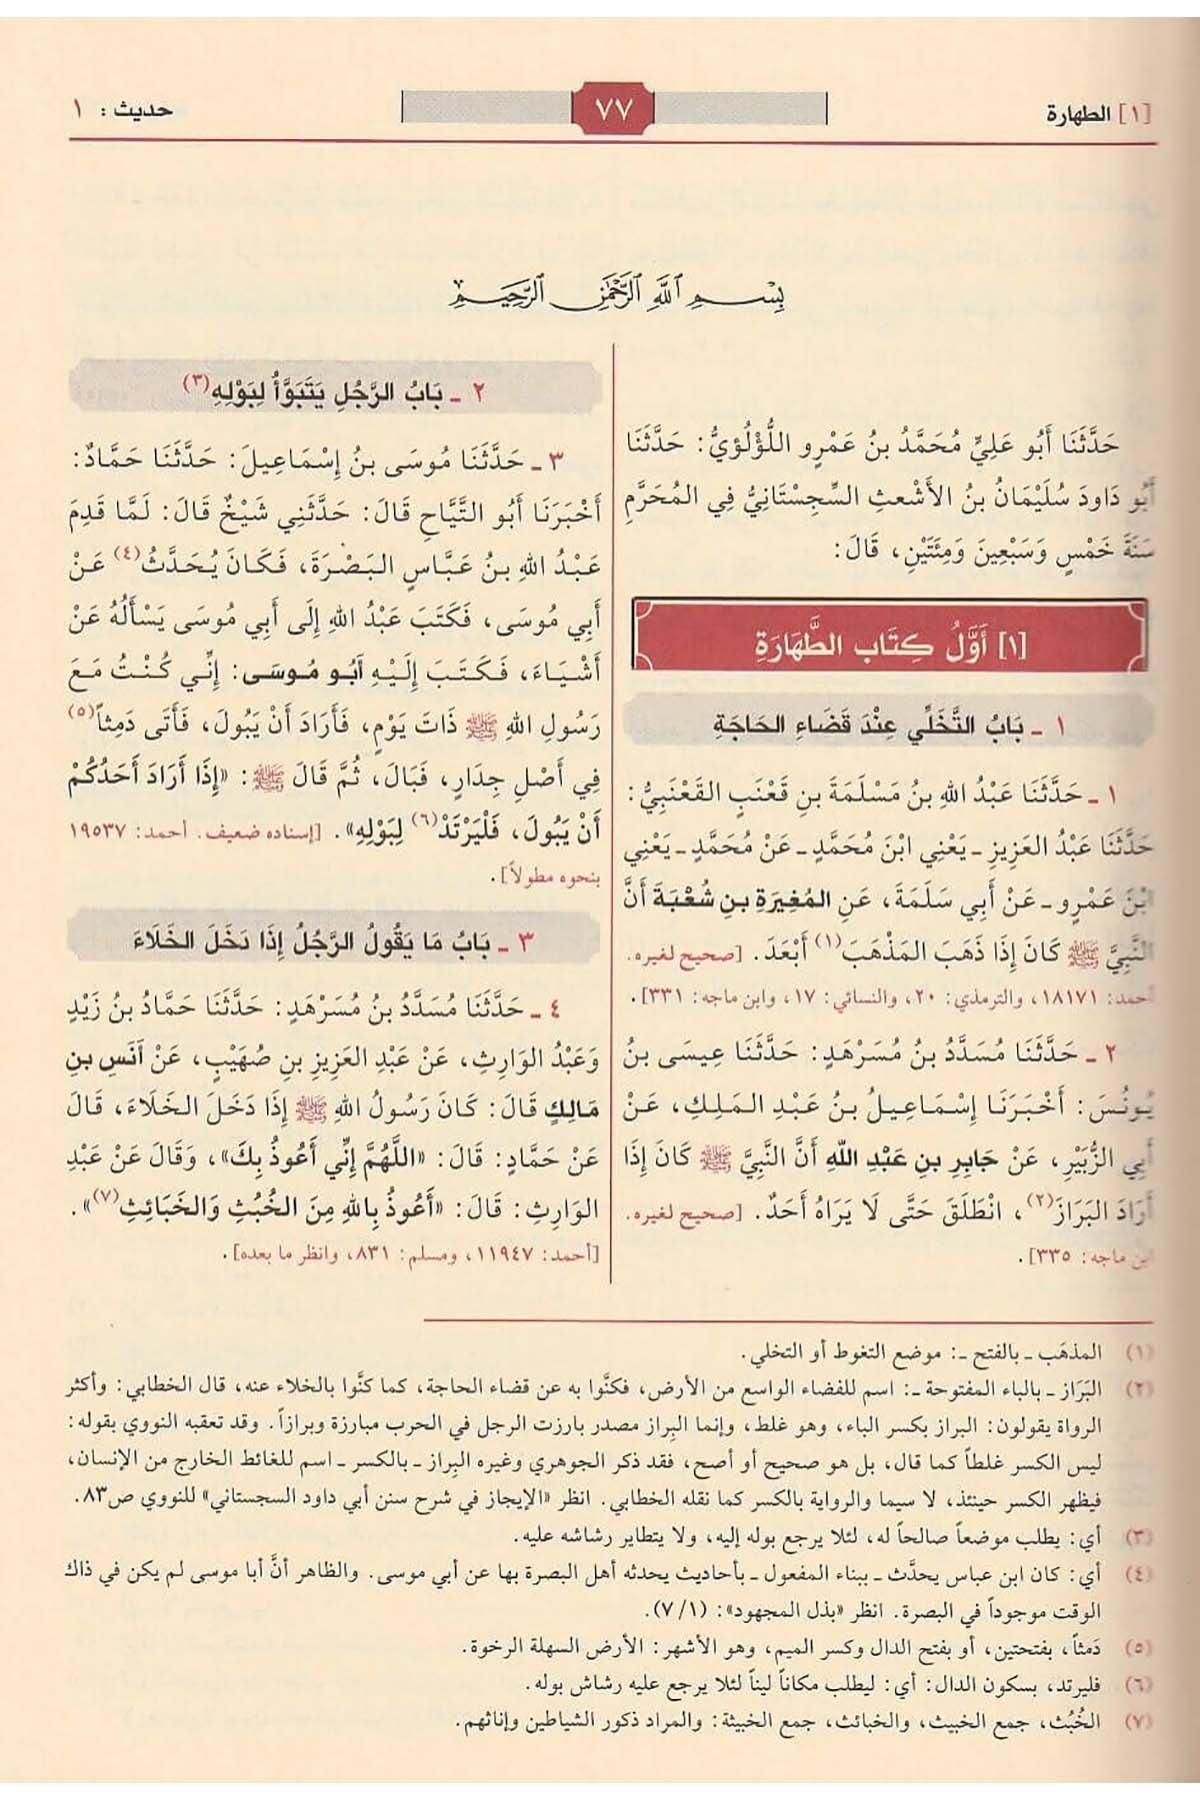 [١] الطهارة
٧٧
حديث : ١
بِسْمِ اللَّهِ الرَّحْمَنِ الرَّحِيمِ
حَدَّثَنَا أَبُو عَلِيٍّ مُحَمَّدُ بنُ عَمْرٍو اللُّؤْلُؤيُّ: حَدَّثَنَا
أَبُو دَاودَ سُلَيْمَانُ بنُ الأَشْعثِ السِّجِسْتَانِيُّ فِي المُحَرَّمِ
سَنَةَ خَمْسٍ وَسَبْعِينَ وَمِئَتَيْنِ، قَالَ:
[١] أَوَّلُ كِتَاب الطَّهَارَةِ
١ ـ بَابُ التَّخَلِّي عِنْدَ قَضَاءِ الحَاجَةِ
١ ـ حَدَّثَنَا عَبْدُ اللهِ بنُ مَسْلَمَةَ بنِ قَعْنَبٍ القَعْنَبِيُّ:
حَدَّثَنَا عَبْدُ العَزِيزِ ـ يَعْنِي ابْنَ مُحَمَّدٍ ـ عَنْ مُحَمَّدٍ ـ يَعْنِي
ابْنَ عَمْرٍو ـ عَنْ أَبِي سَلَمَةَ، عَنِ المُغِيرَةِ بنِ شُعْبَةَ أَنَّ
النَّبِيَّ ﷺ كَانَ إِذَا ذَهَبَ المَذْهَبَ(١) أَبْعَدَ. [صحيح لغيره.
أحمد: ١٨١٧١، والترمذي: ٢٠، والنسائي: ١٧، وابن ماجه: ٣٣١].
٢ ـ حَدَّثَنَا مُسَدَّدُ بنُ مُسَرْهَدٍ: حَدَّثَنَا عِيسَى بنُ
يُونُسَ: أَخْبَرَنَا إِسْمَاعِيلُ بنُ عَبْدِ المَلِكِ، عَنْ
أَبِي الزُّبَيْرِ، عَنْ جَابِرِ بنِ عَبْدِ اللَّهِ أَنَّ النَّبِيَّ ﷺ كَانَ إِذَا
أَرَادَ البَرَازَ(٢)، انْطَلَقَ حَتَّى لَا يَرَاهُ أَحَدٌ. [صحيح لغيره.
ابن ماجه: ٣٣٥].
٢ ـ بَابُ الرَّجُلِ يَتَبَوَّأُ لِبَوْلِهِ(٣)
٣ ـ حَدَّثَنَا مُوسَى بنُ إِسْمَاعِيلَ: حَدَّثَنَا حَمَّادٌ:
أَخْبَرَنَا أَبُو التَّيَّاحِ قَالَ: حَدَّثَنِي شَيْخٌ قَالَ: لَمَّا قَدِمَ
عَبْدُ اللهِ بنُ عَبَّاسٍ البَصْرَةَ، فَكَانَ يُحَدَّثُ(٤) عَنْ
أَبِي مُوسَى، فَكَتَبَ عَبْدُ اللهِ إِلَى أَبِي مُوسَى يَسْأَلُهُ عَنْ
أَشْيَاءَ، فَكَتَبَ إِلَيْهِ أَبُو مُوسَى: إِنِّي كُنْتُ مَعَ
رَسُولِ اللهِ ﷺ ذَاتَ يَوْمٍ، فَأَرَادَ أَنْ يَبُولَ، فَأَتَى دَمِثاً(٥)
فِي أَصْلِ جِدَارٍ، فَبَالَ، ثُمَّ قَالَ ﷺ: «إِذَا أَرَادَ أَحَدُكُمْ
أَنْ يَبُولَ، فَلْيَرْتَدْ(٦) لِبَوْلِهِ». [إسناده ضعيف. أحمد: ١٩٥٣٧
بنحوه مطولاً].
٣ ـ بَابُ مَا يَقُولُ الرَّجُلُ إِذَا دَخَلَ الخَلَاءَ
٤ ـ حَدَّثَنَا مُسَدَّدُ بنُ مُسَرْهَدٍ: حَدَّثَنَا حَمَّادُ بنُ زَيْدٍ
وَعَبْدُ الوَارِثِ، عَنْ عَبْدِ العَزِيزِ بنِ صُهَيْبٍ، عَنْ أَنَسِ بنِ
مَالِكٍ قَالَ: كَانَ رَسُولُ اللهِ ﷺ إِذَا دَخَلَ الخَلَاءَ، قَالَ
عَنْ حَمَّادٍ: قَالَ: «اللَّهُمَّ إِنِّي أَعُوذُ بِكَ»، وَقَالَ عَنْ عَبْدِ
الوَارِثِ: قَالَ: «أَعُوذُ بِاللهِ مِنَ الخُبُثِ وَالخَبَائِثِ(٧)».
[أحمد: ١١٩٤٧، ومسلم: ٨٣١، وانظر ما بعده].
(١) المذهَب ـ بالفتح ـ: موضع التغوط أو التخلي.
(٢) البَرَاز ـ بالباء المفتوحة ـ: اسم للفضاء الواسع من الأرض، فكنَّوا به عن قضاء الحاجة، كما كنَّوا بالخلاء عنه، قال الخطابي: وأكثر
الرواة يقولون: البراز بكسر الباء، وهو غلط، وإنما البِراز مصدر بارزت الرجل في الحرب مبارزة وبرازاً. وقد تعقبه النووي بقوله:
ليس الكسر غلطاً كما قال، بل هو صحيح أو أصح، فقد ذكر الجوهري وغيره البِراز ـ بالكسر ـ اسم للغائط الخارج من الإنسان،
فيظهر الكسر حينئذ، لا سيما والرواية بالكسر كما نقله الخطابي. انظر «الإيجاز في شرح سنن أبي داود السجستاني» للنووي ص٨٣.
(٣) أي: يطلب موضعاً صالحاً له، لئلا يرجع بوله إليه، ولا يتطاير رشاشه عليه.
(٤) أي: كان ابن عباس يحدَّث ـ ببناء المفعول ـ بأحاديث يحدثه أهل البصرة بها عن أبي موسى. والظاهر أنَّ أبا موسى لم يكن في ذاك
الوقت موجوداً في البصرة. انظر «بذل المجهود»: (١/ ٧).
(٥) دَمثاً، بفتحتين، أو بفتح الدال وكسر الميم، وهو الأشهر: الأرض السهلة الرخوة.
(٦) فليرتد، بسكون الدال: أي: ليطلب مكاناً ليناً لئلا يرجع عليه رشاش بوله.
(٧) الخُبُث، جمع الخبيث، والخبائث، جمع الخبيثة: والمراد ذكور الشياطين وإناثهم.